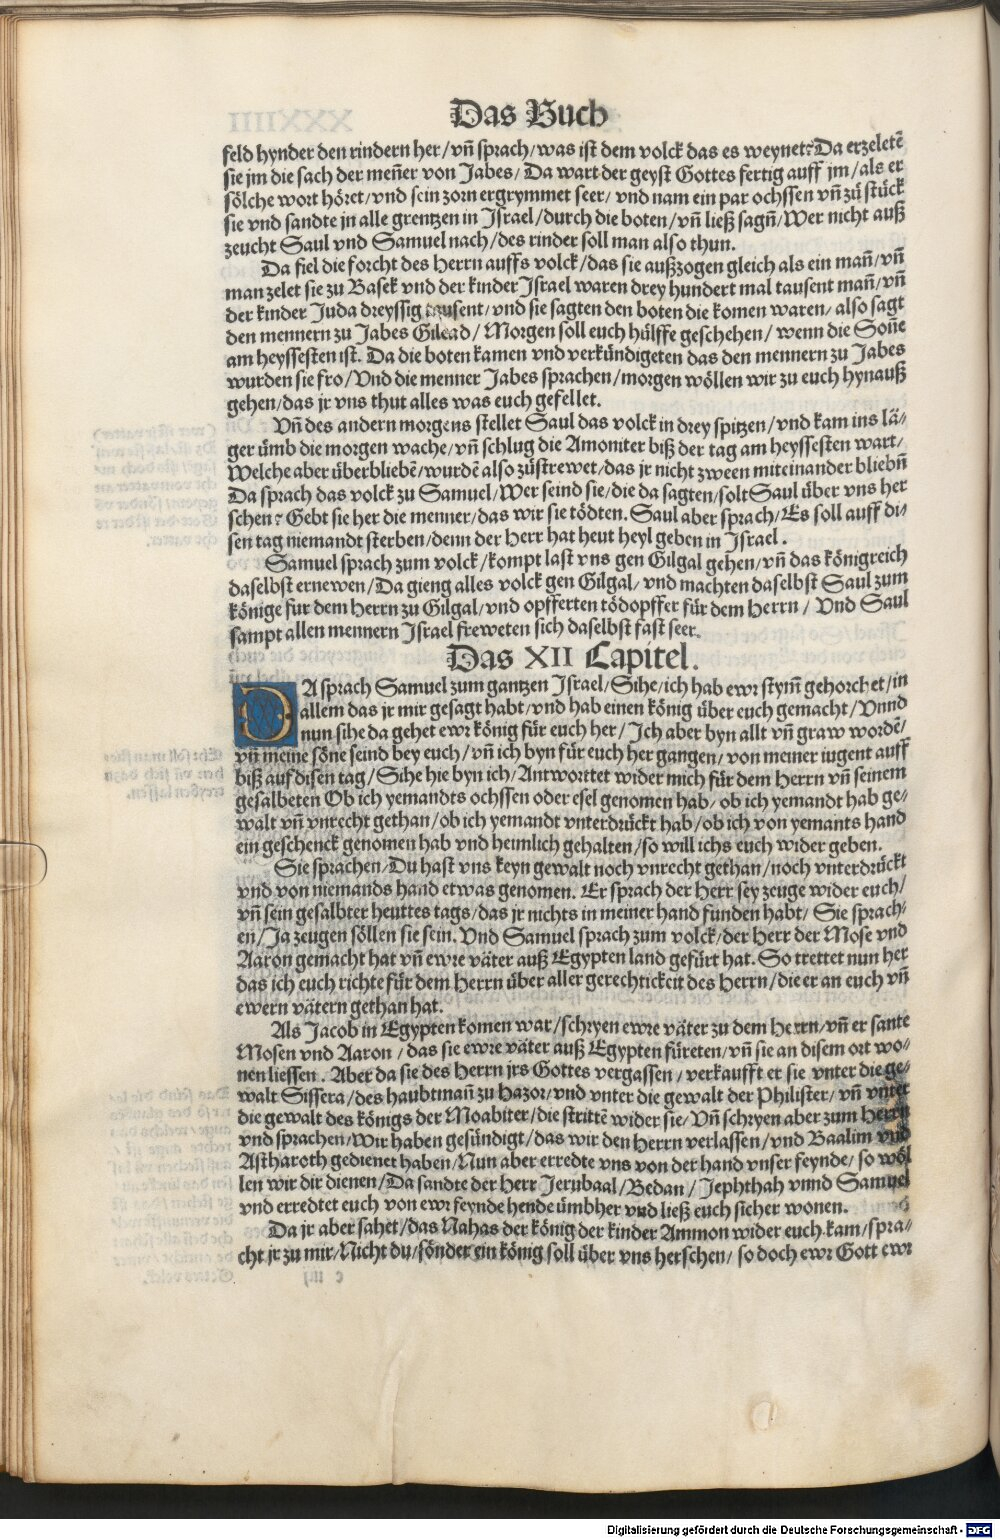 Das Buch
feld hynder den rindern her/vñ sprach/was ist dem volck das es weynet? Da erzeletē
sie jm die sach der meñer von Jabes/ Da wart der geyst Gottes fertig auff jm/als er
sölche wort höret/vnd sein zorn ergrymmet seer/ vnd nam ein par ochssen vñ zů stück
sie vnd sandte jn alle grentzen in Israel/durch die boten/vñ ließ sagñ/Wer nicht auß
zeucht Saul vnd Samuel nach/des rinder soll man also thun.
Da fiel die forcht des Herrn auffs volck/das sie außzogen gleich als ein mañ/vñ
man zelet sie zu Basek vnd der kinder Israel waren drey hundert mal tausent mañ/vñ
der kinder Juda dreyssig tausent/vnd sie sagten den boten die komen waren/also sagt
den mennern zu Jabes Gilead/ Morgen soll euch hülffe geschehen/ wenn die Soñe
am heyssesten ist. Da die boten kamen vnd verkündigeten das den mennern zu Jabes
wurden sie fro/Vnd die menner Jabes sprachen/morgen wöllen wir zu euch hynauß
gehen/das jr vns thut alles was euch gefellet.
Vñ des andern morgens stellet Saul das volck in drey spitzen/vnd kam ins lä⸗
ger ümb die morgen wache/vñ schlug die Amoniter biß der tag am heyssesten wart/
Welche aber überbliebē/wurdē also zůstrewet/das jr nicht zween miteinander bliebñ
Da sprach das volck zu Samuel/Wer seind sie/die da sagten/solt Saul über vns her
schen? Gebt sie her die menner/das wir sie tödten. Saul aber sprach/Es soll auff di⸗
sen tag niemandt sterben/denn der Herr hat heut heyl geben in Israel.
Samuel sprach zum volck/kompt last vns gen Gilgal gehen/vñ das königreich
daselbst ernewen/Da gieng alles volck gen Gilgal/vnd machten daselbst Saul zum
könige fur dem Herrn zu Gilgal/vnd opfferten tödopffer für dem Herrn/ Vnd Saul
sampt allen mennern Israel freweten sich daselbst fast seer.
Das XII Capitel.
DA sprach Samuel zum gantzen Israel/Sihe/ich hab ewr stym̃ gehorchet/in
allem das jr mir gesagt habt/vnd hab einen könig über euch gemacht/Vnnd
nun sihe da gehet ewr könig für euch her/ Ich aber byn allt vñ graw wordē/
vñ meine söne seind bey euch/vñ ich byn für euch her gangen/von meiner iugent auff
biß auf disen tag/Sihe hie byn ich/Antworttet wider mich für dem Herrn vñ seinem
gesalbeten Ob ich yemandts ochssen oder esel genomen hab/ob ich yemandt hab ge⸗
walt vñ vnrecht gethan/ob ich yemandt vnterdrückt hab/ob ich von yemants hand
ein geschenck genomen hab vnd heimlich gehalten/so will ichs euch wider geben.
Sie sprachen/Du hast vns keyn gewalt noch vnrecht gethan/noch vnterdrückt
vnd von niemands hand etwas genomen. Er sprach der Herr sey zeuge wider euch/
vñ sein gesalbter heuttes tags/das jr nichts in meiner hand funden habt/ Sie sprach⸗
en/Ja zeugen söllen sie sein. Vnd Samuel sprach zum volck/der Herr der Mose vnd
Aaron gemacht hat vñ ewre väter auß Egypten land gefürt hat. So trettet nun her
das ich euch richte für dem Herrn über aller gerechtickeit des Herrn/die er an euch vñ
ewern vätern gethan hat.
Als Jacob in Egypten komen war/schryen ewre väter zu dem Herrn/vñ er sante
Mosen vnd Aaron/das sie ewre väter auß Egypten füreten/vñ sie an disem ort wo⸗
nen liessen. Aber da sie des Herrn jrs Gottes vergassen/verkaufft er sie vnter die ge⸗
walt Sissera/des haubtmañ zu Hazor/vnd vnter die gewalt der Philister/vñ vnter
die gewalt des königs der Moabiter/die strittē wider sie/Vñ schryen aber zum Herrn
vnd sprachen/Wir haben gesündigt/das wir den Herrn verlassen/vnd Baalim vnd
Astharoth gedienet haben/Nun aber erredte vns von der hand vnser feynde/so wöl
len wir dir dienen/Da sandte der Herr Jerubaal/Bedan/Jephthah vnnd Samuel
vnd erredtet euch von ewr feynde hende ümbher vnd ließ euch sicher wonen.
Da jr aber sahet/das Nahas der könig der kinder Ammon wider euch kam/spra⸗
cht jr zu mir/Nicht du/sönder ein könig soll über vns herschen/so doch ewr Gott ewr
Digitalisierung gefördert durch die Deutsche Forschungsgemeinschaft - DFG